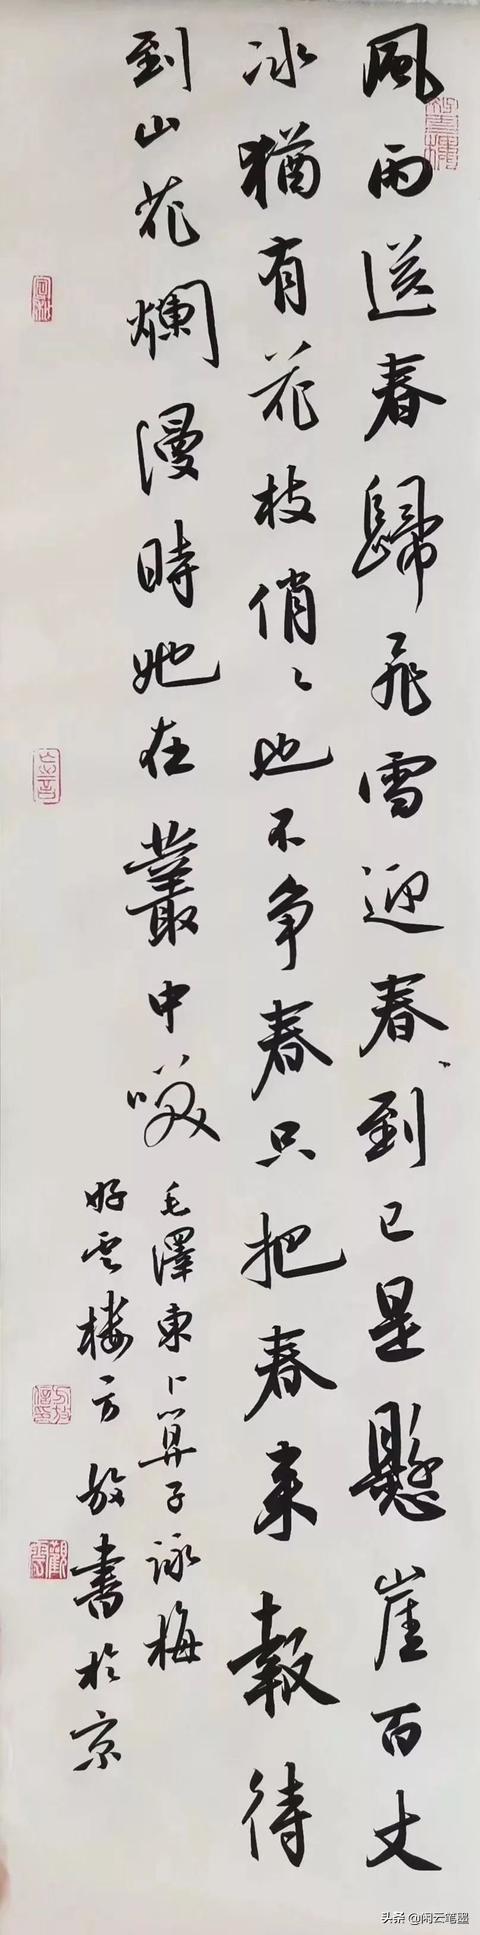 風雨送春歸飛雪迎春到已是懸崖百丈
冰猶有花枝俏〻也不争春只把春来報待
到山花爛漫時她在叢中咲
毛澤東卜算子詠梅
好雲楼方放書於京
头条 @闲云笔墨